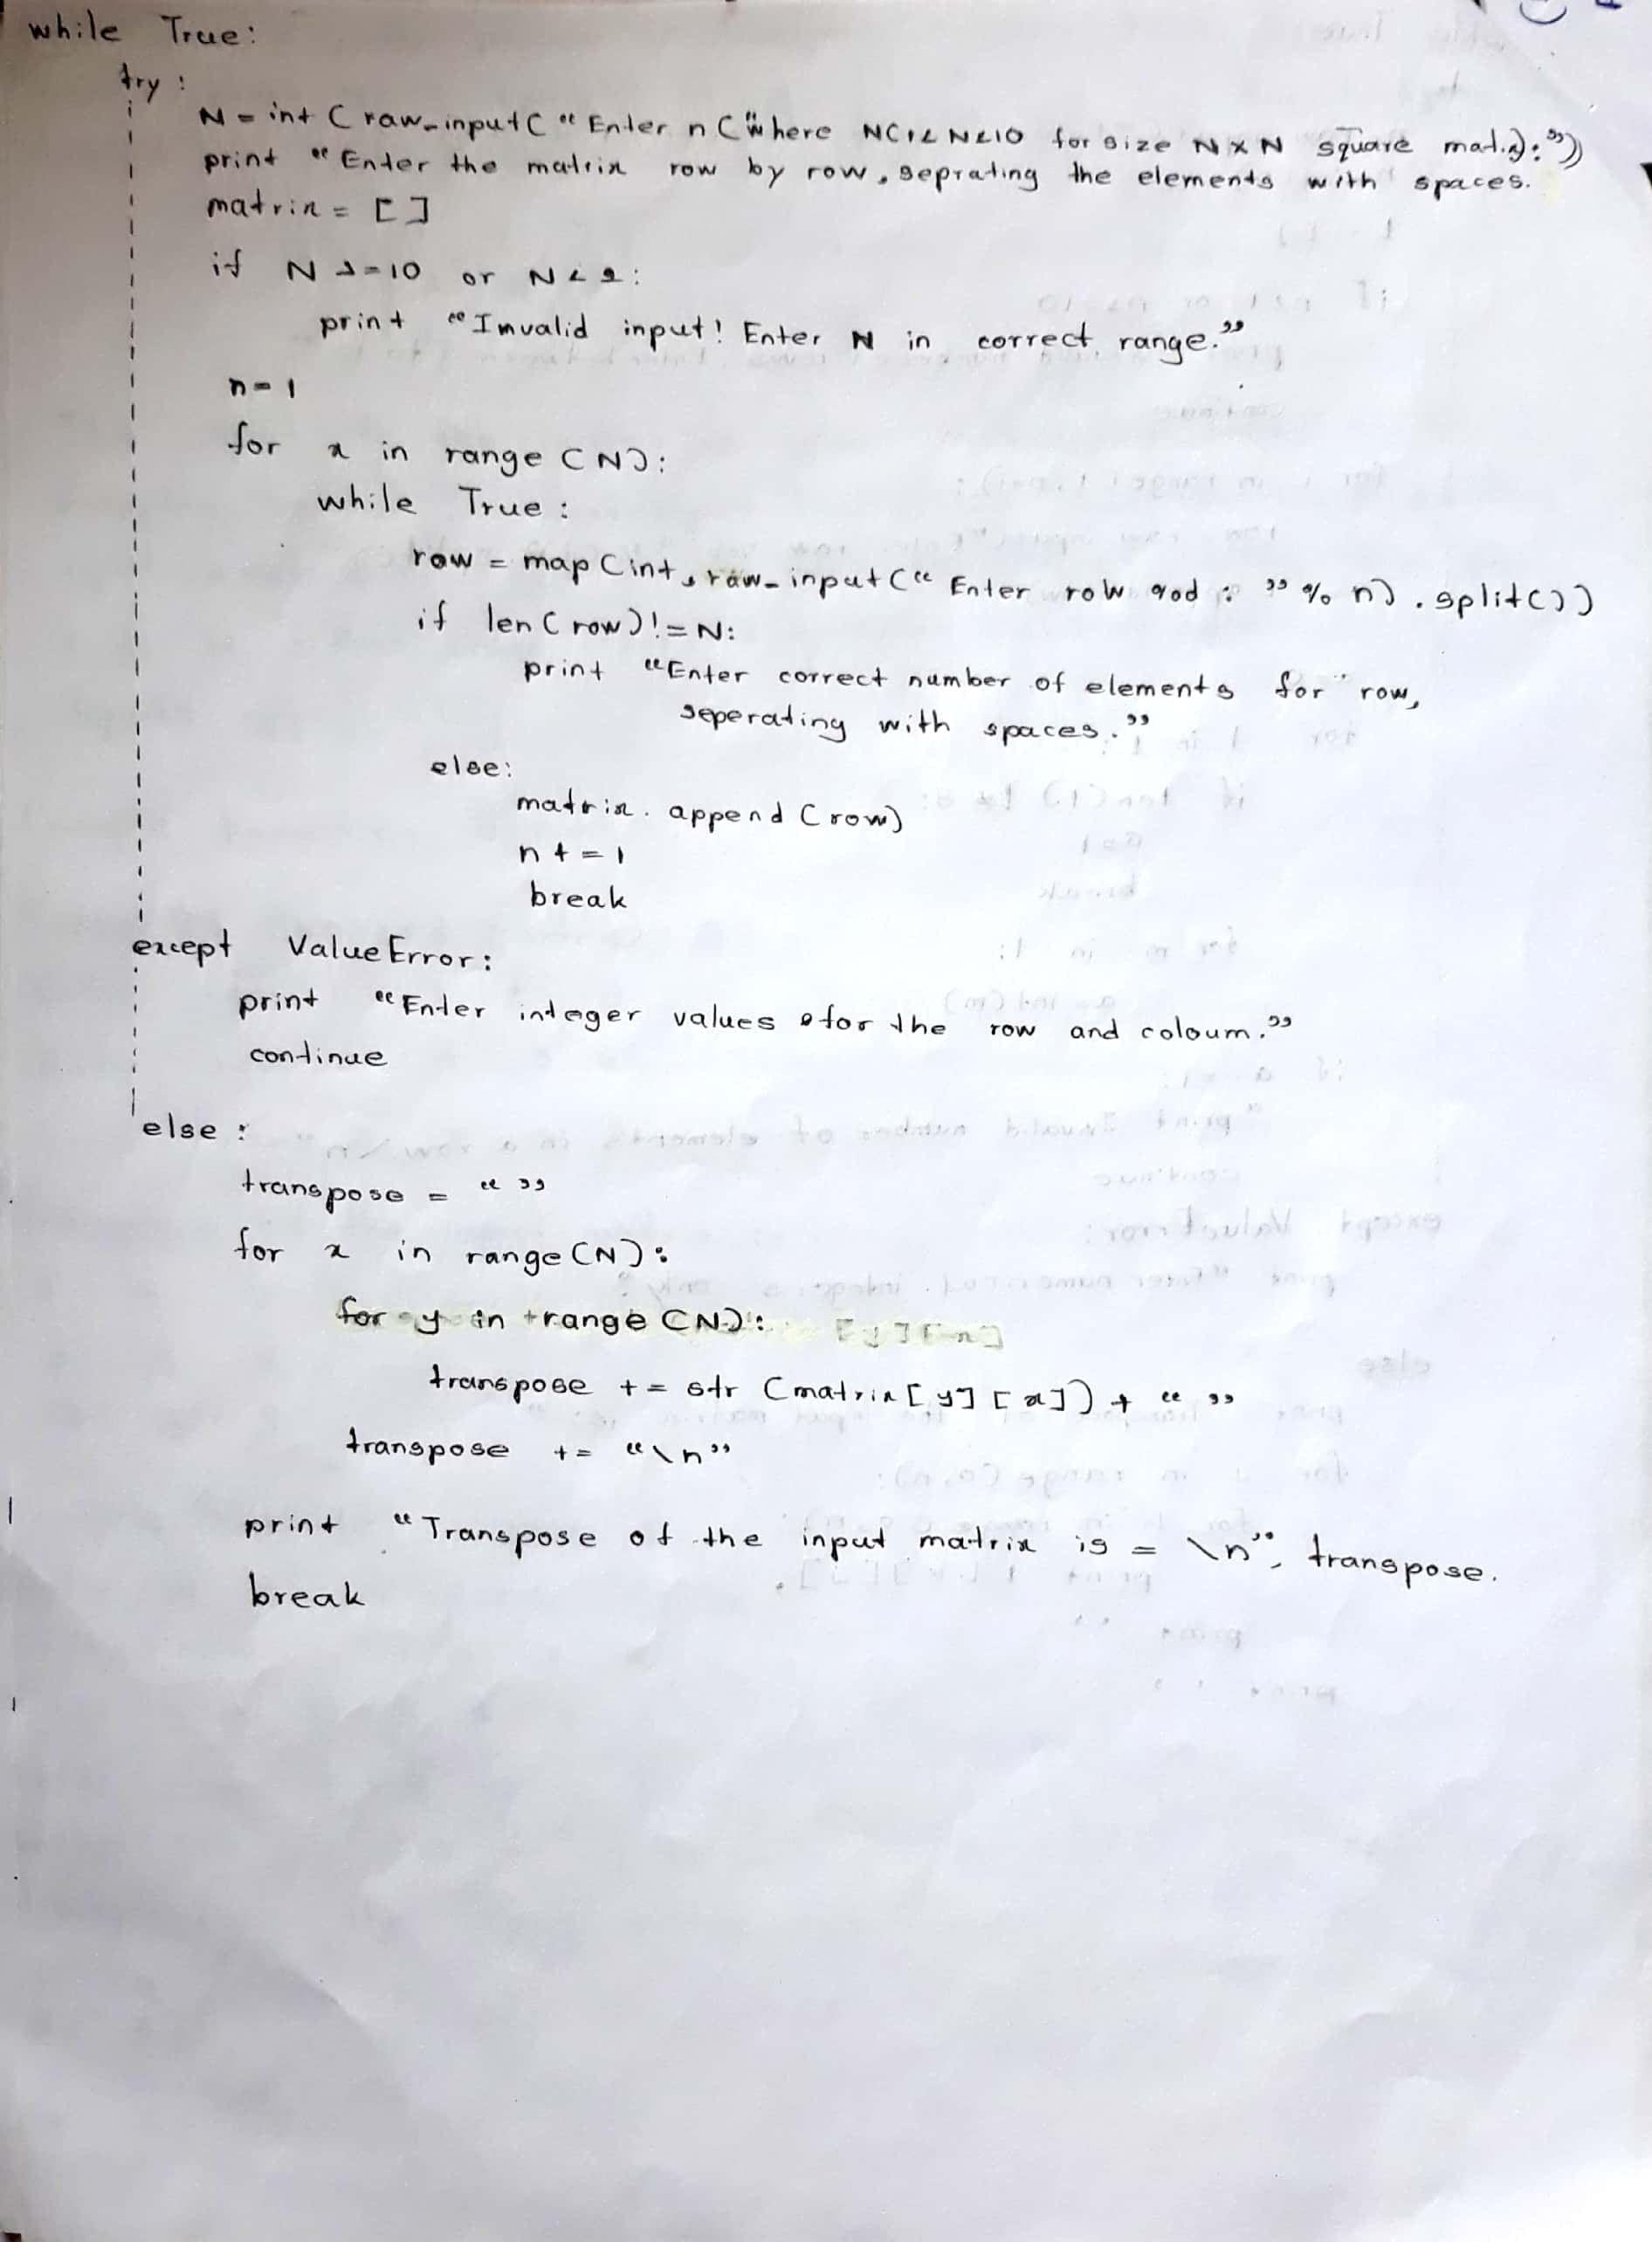 while True:
try:
N = int (raw_input(" Enter n (where N(1< N<10 for size N x N square
print "Enter the matrix row by row, seprating the elements with spaces.
matrix = []
if N >=10 or N<2:
print "Invalid input! Enter N in correct range."
n=1
for x in range (N):
while True:
row = map (int, raw_input(" Enter row %d : " % n) . split())
if len (row) != N:
print "Enter correct number of elements for row,
seperating with spaces."
else:
matrix. append (row)
n += 1
break
except ValueError:
print "Enter integer values for the row and coloum."
continue
else:
transpose = " "
for x in range (N):
for y in range (N):
transpose += str (matrix[y] [x]) + " "
transpose += "\n"
print "Transpose of the input matrix is = \n", transpose.
break